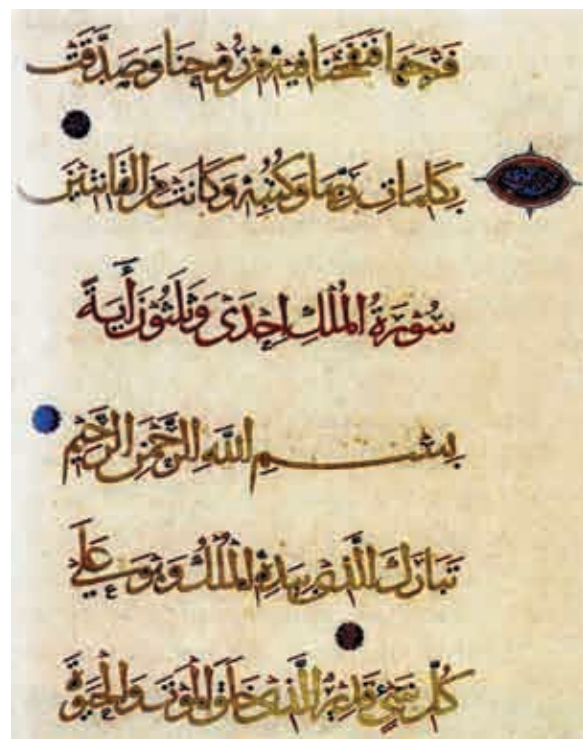 فَرْجَهَا فَنَفَخْنَا فِيهِ مِنْ رُوحِنَا وَصَدَّقَتْ
بِكَلِمَاتِ رَبِّهَا وَكُتُبِهِ وَكَانَتْ مِنَ الْقَانِتِينَ
سُورَةُ الْمُلْكِ اِحْدَى وَثَلَثُونَ أَيَةً
بِسْمِ اللَّهِ الرَّحْمَنِ الرَّحِيمِ
تَبَارَكَ الَّذِي بِيَدِهِ الْمُلْكُ وَهُوَ عَلَى
كُلِّ شَيْءٍ قَدِيرٌ الَّذِي خَلَقَ الْمَوْتَ وَالْحَيَوةَ